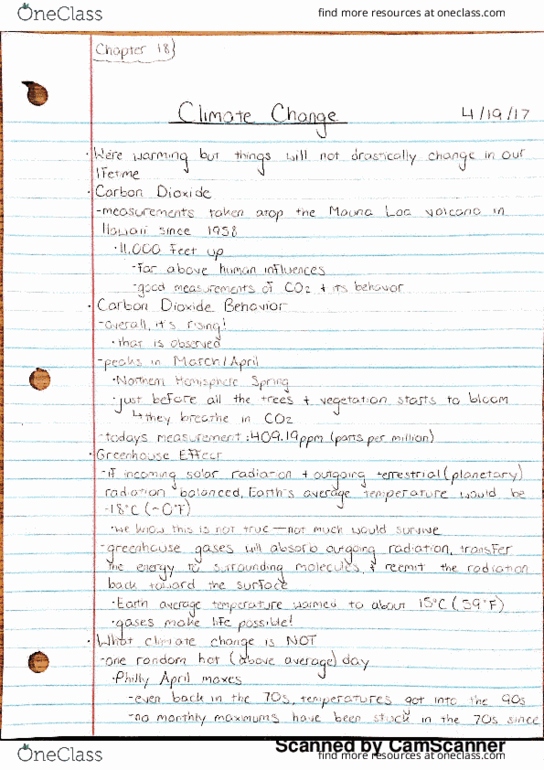 OneClass
find more resources at oneclass.com
Chapter 18
Climate Change
4/19/17
· We're warming but things will not drastically change in our
lifetime
· Carbon Dioxide
-measurements taken atop the Mauna Loa volcano in
Hawaii since 1958
· 11,000 feet up
-far above human influences
-good measurements of CO2 + its behavior
· Carbon Dioxide Behavior
-overall, it's rising!
· that is observed
-peaks in March/April
· Northern Hemisphere Spring
-just before all the trees + vegetation starts to bloom
↳they breathe in CO2
-todays measurement: 409.19ppm (parts per million)
· Greenhouse Effect
-if incoming solar radiation + outgoing terrestrial (planetary)
radiation balanced, Earth's average temperature would be
-18°C (~0°F)
· we know this is not true — not much would survive
-greenhouse gases will absorb outgoing radiation, transfer
the energy to surrounding molecules, + reemit the radiation
back toward the surface
· Earth average temperature warmed to about 15°C (59°F)
· gases make life possible!
· What climate change is NOT
-one random hot (above average) day
· Philly April maxes
-even back in the 70s, temperatures got into the 90s
-no monthly maximums have been stuck in the 70s since
Scanned by CamScanner
OneClass
find more resources at oneclass.com